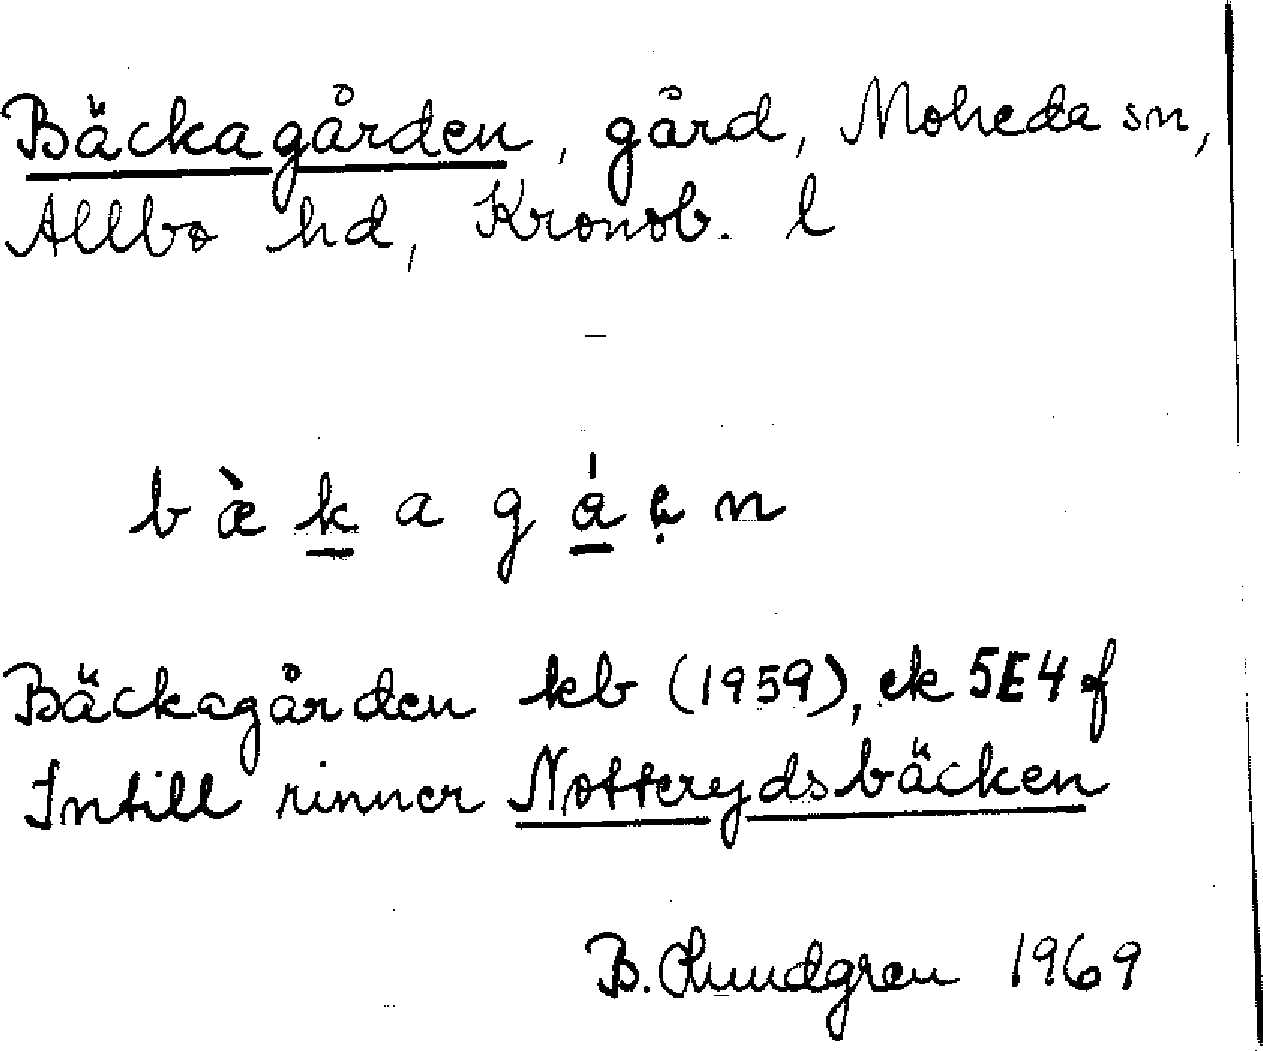 Bäckagården, gård, Moheda sn,
Allbo hd, Kronob. l
–
b æ̀ k a g á̱ ę n
Bäckagården kb (1959), ek 5E4f
Intill rinner Notterydsbäcken
B. Lundgren 1969